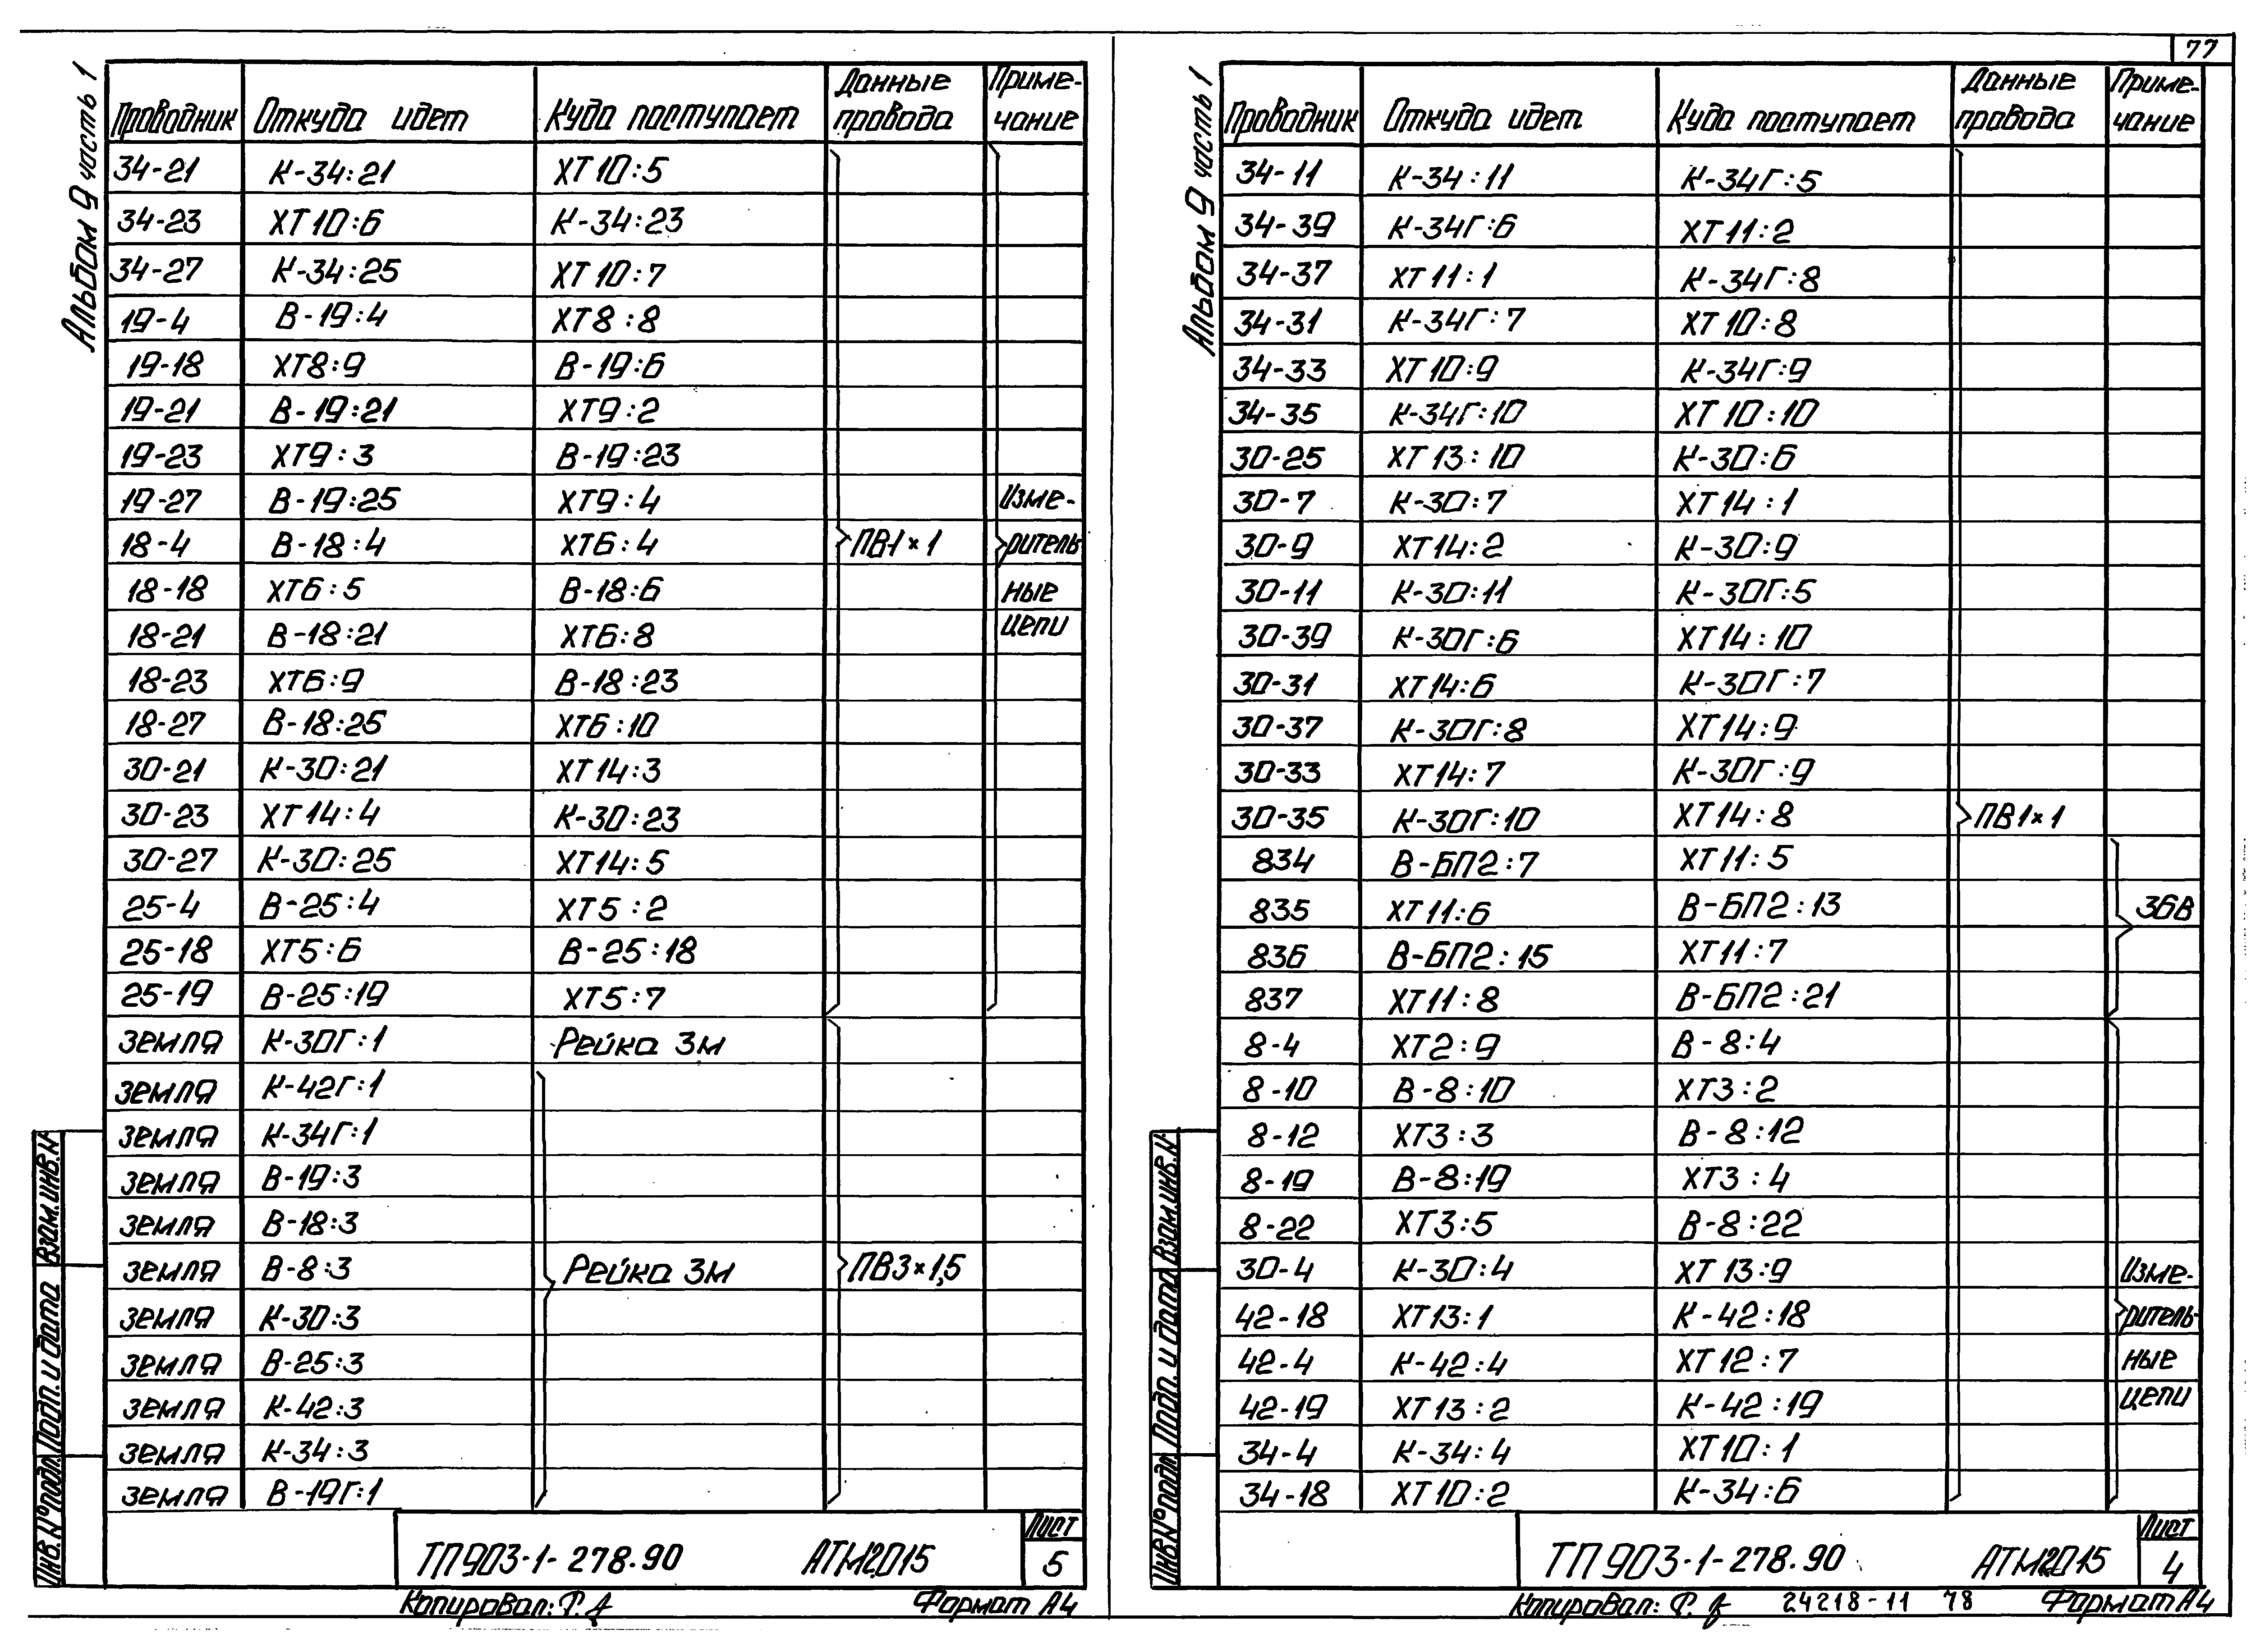 77
Альбом 9 часть 1
Проводник Откуда идет Куда поступает Данные провода Приме-чание
34-21 К-34:21 ХТ10:5
34-23 ХТ10:6 К-34:23
34-27 К-34:25 ХТ10:7
19-4 В-19:4 ХТ8:8
19-18 ХТ8:9 В-19:6
19-21 В-19:21 ХТ9:2
19-23 ХТ9:3 В-19:23
19-27 В-19:25 ХТ9:4 Изме-
18-4 В-18:4 ХТ6:4 ПВ1×1 ритель
18-18 ХТ6:5 В-18:6 ные
18-21 В-18:21 ХТ6:8 цепи
18-23 ХТ6:9 В-18:23
18-27 В-18:25 ХТ6:10
30-21 К-30:21 ХТ14:3
30-23 ХТ14:4 К-30:23
30-27 К-30:25 ХТ14:5
25-4 В-25:4 ХТ5:2
25-18 ХТ5:6 В-25:18
25-19 В-25:19 ХТ5:7
земля К-30Г:1 Рейка 3м
земля К-42Г:1
земля К-34Г:1
земля В-19:3
земля В-18:3
земля В-8:3 Рейка 3м ПВ3×1,5
земля К-30:3
земля В-25:3
земля К-42:3
земля К-34:3
земля В-19Г:1
Инв.N°подл. Подп. и дата Взам.инв.N
ТП903-1-278.90 АТМ2.015 Лист 5
Копировал: Формат А4
Альбом 9 часть 1
Проводник Откуда идет Куда поступает Данные провода Приме-чание
34-11 К-34:11 К-34Г:5
34-39 К-34Г:6 ХТ11:2
34-37 ХТ11:1 К-34Г:8
34-31 К-34Г:7 ХТ10:8
34-33 ХТ10:9 К-34Г:9
34-35 К-34Г:10 ХТ10:10
30-25 ХТ13:10 К-30:6
30-7 К-30:7 ХТ14:1
30-9 ХТ14:2 К-30:9
30-11 К-30:11 К-30Г:5
30-39 К-30Г:6 ХТ14:10
30-31 ХТ14:6 К-30Г:7
30-37 К-30Г:8 ХТ14:9
30-33 ХТ14:7 К-30Г:9
30-35 К-30Г:10 ХТ14:8 ПВ1×1
834 В-БП2:7 ХТ11:5
835 ХТ11:6 В-БП2:13 36В
836 В-БП2:15 ХТ11:7
837 ХТ11:8 В-БП2:21
8-4 ХТ2:9 В-8:4
8-10 В-8:10 ХТ3:2
8-12 ХТ3:3 В-8:12
8-19 В-8:19 ХТ3:4
8-22 ХТ3:5 В-8:22
30-4 К-30:4 ХТ13:9 Изме-
42-18 ХТ13:1 К-42:18 ритель-
42-4 К-42:4 ХТ12:7 ные
42-19 ХТ13:2 К-42:19 цепи
34-4 К-34:4 ХТ10:1
34-18 ХТ10:2 К-34:6
Инв.N°подл. Подп. и дата Взам.инв.N
ТП903-1-278.90 АТМ2.015 Лист 4
Копировал: 24218-11 78 Формат А4